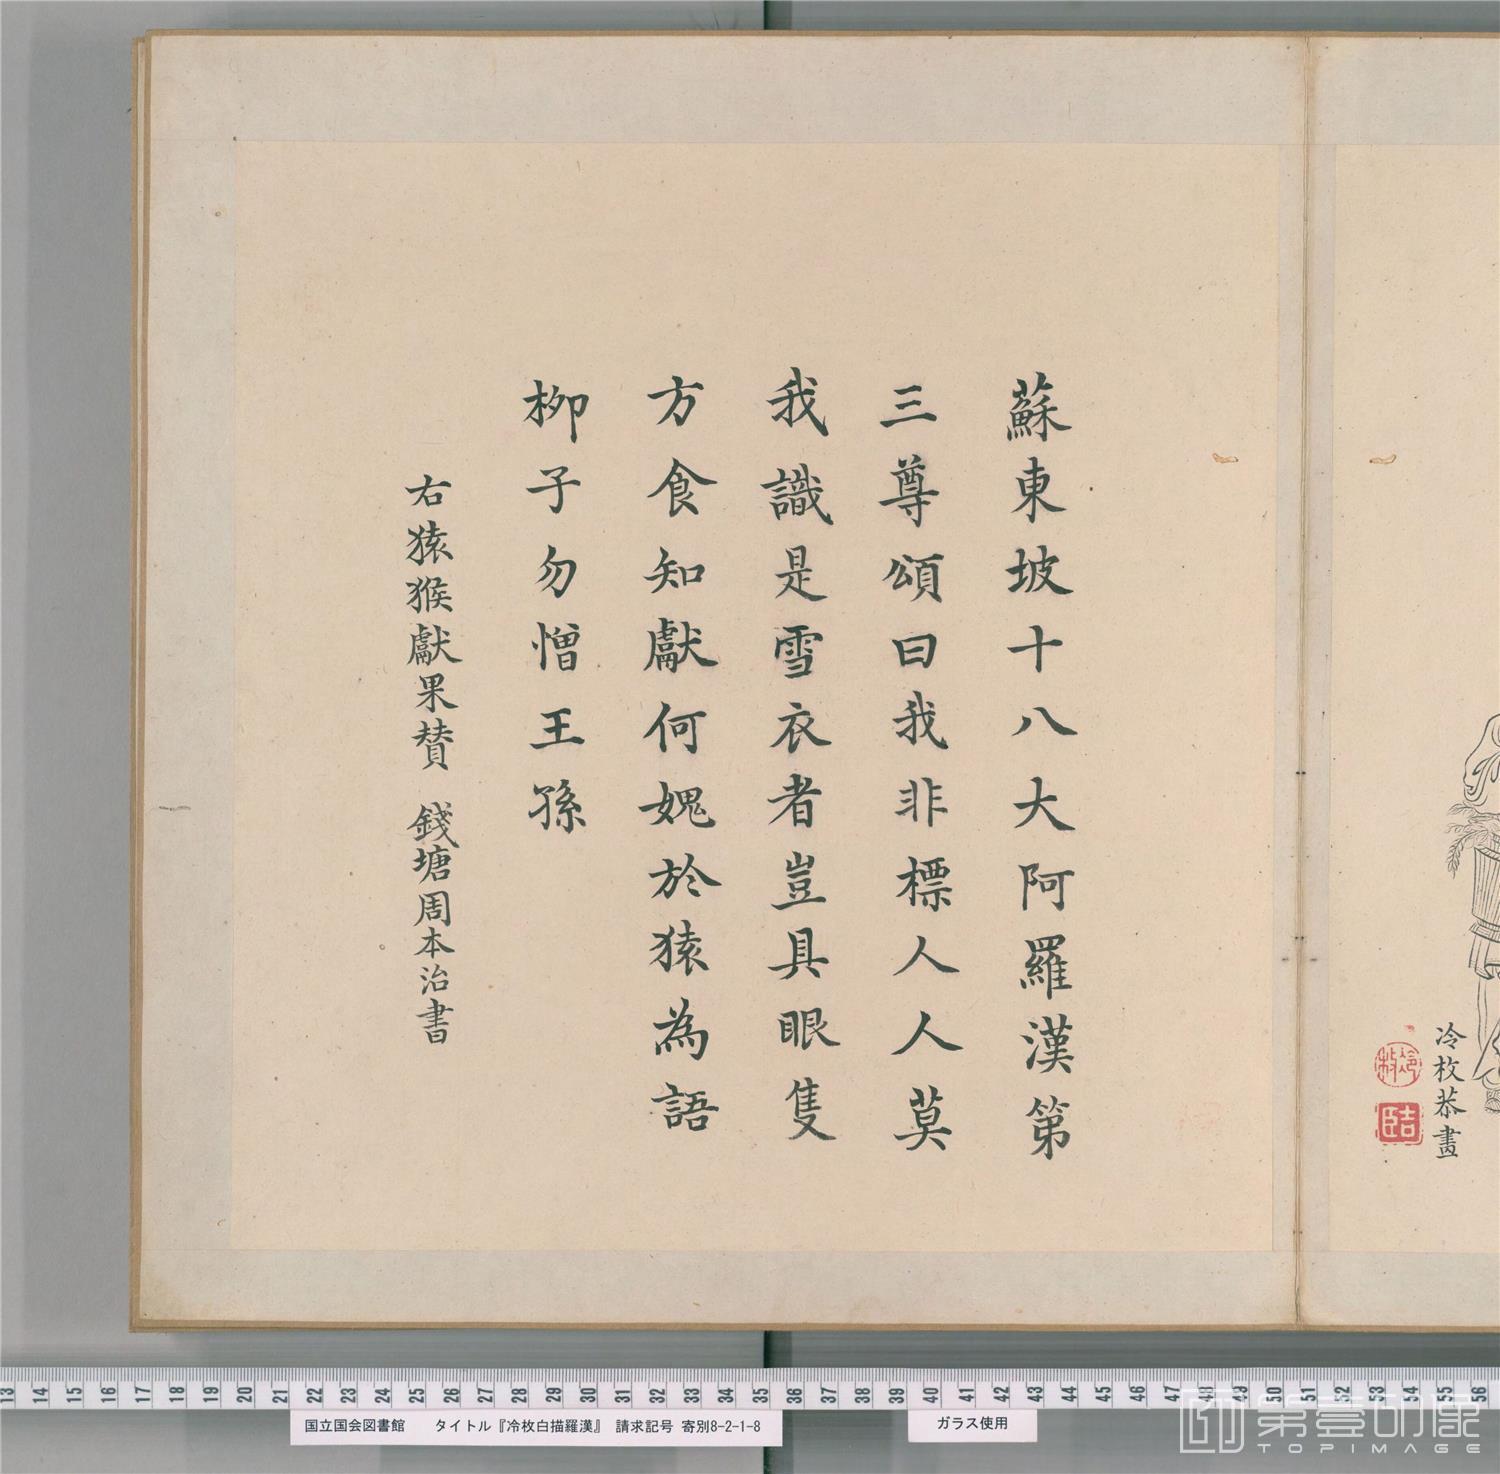 蘇東坡十八大阿羅漢第
三尊頌曰我非標人人莫
我識是雪衣者豈具眼隻
方食知獻何媿於猿為語
柳子勿憎王孫
右猿猴獻果贊 錢塘周本治書
冷枚恭畫
冷枚
臣吉
13 14 15 16 17 18 19 20 21 22 23 24 25 26 27 28 29 30 31 32 33 34 35 36 37 38 39 40 41 42 43 44 45 46 47 48 49 50 51 52 53 54 55 56
国立国会図書館 タイトル『冷枚白描羅漢』 請求記号 寄別8-2-1-8
ガラス使用
第壹印像
TOPIMAGE